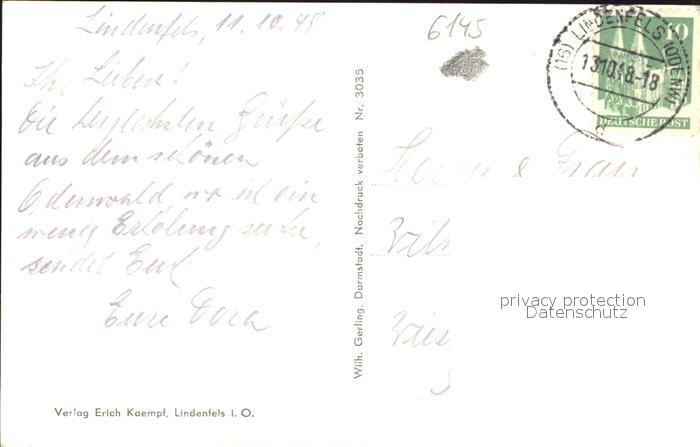 Lindenfels, 11.10.48
Ihr Lieben!
Die herzlichsten Grüße
aus dem schönen
Odenwald, wo ich ein
wenig Erholung suche,
sendet Euch
Eure Dora
Verlag Erich Kaempf, Lindenfels i. O.
Wilh. Gerling. Darmstadt. Nachdruck verboten Nr. 3035
6145
(16) LINDENFELS (ODENW)
13.10.48.-18
10
DEUTSCHE POST
Herrn & Frau
privacy protection
Datenschutz